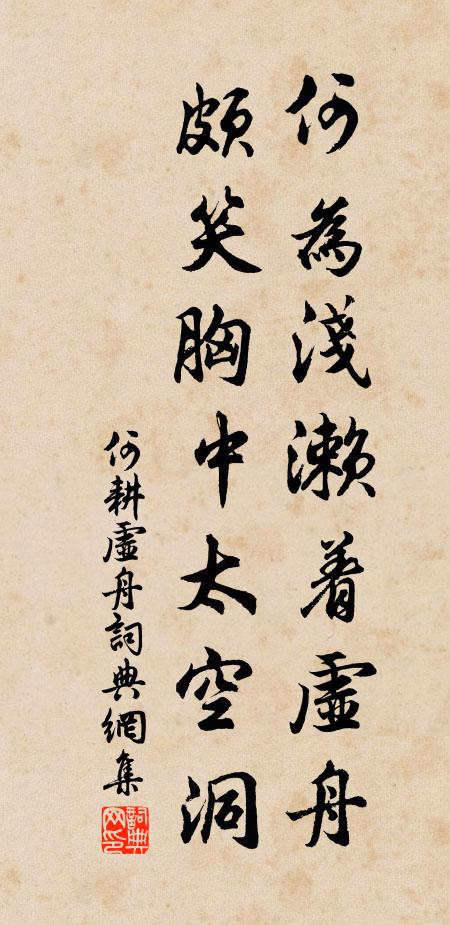 何為淺瀨着虛舟
頗笑胸中太空洞
何耕虛舟詞典網集
詞典网印